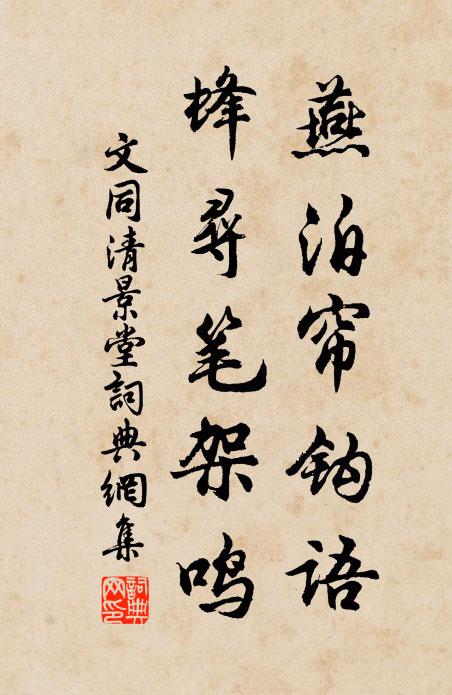 燕泊帘钩语
蜂寻笔架鸣
文同清景堂詞典網集
詞典
网印